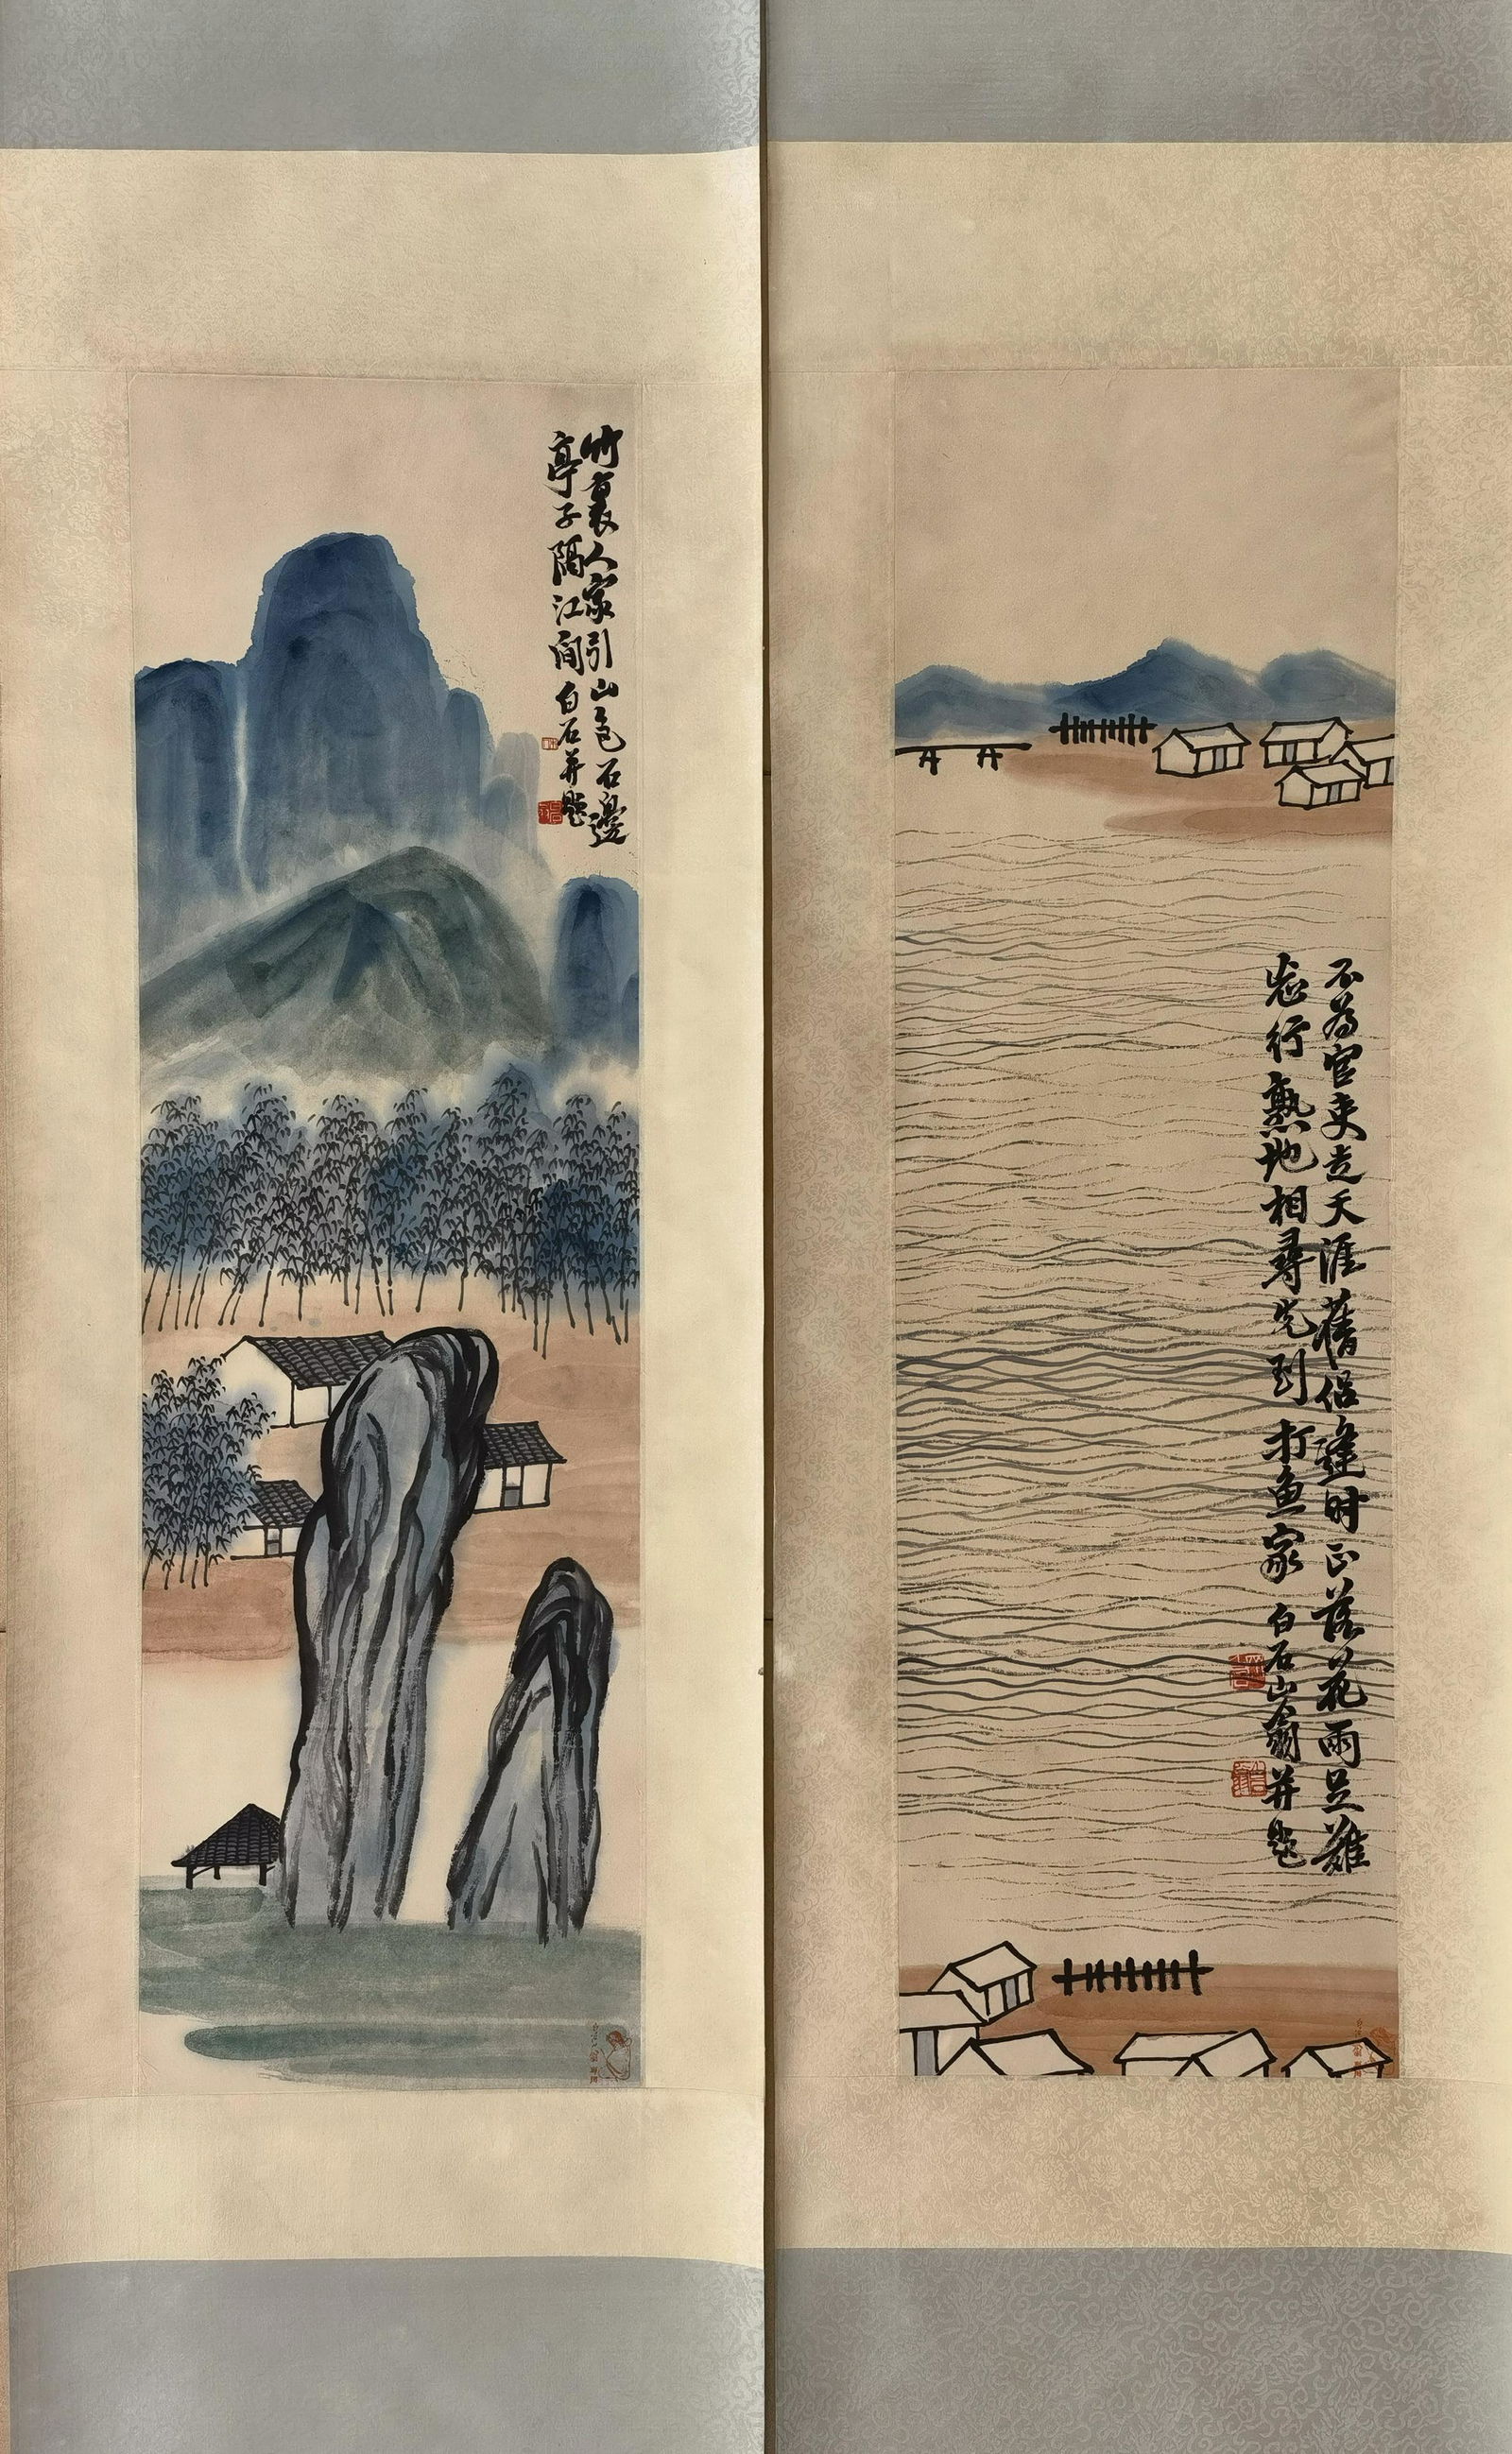 竹裏人家引山色石邊
亭子隔江間
白石并題
不為官吏走天涯舊侶逢時正落花雨足難
忘行熟地相尋先到打魚家
白石山翁并題